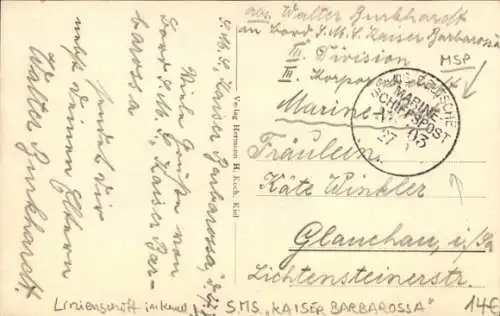 S.M.S. Kaiser Barbarossa,
Viele Grüße von
Bord S.M.S. Kaiser Bar-
barossa
sendet dir
nebst deinen Eltern
Walter Burkhardt.
Verlag Hermann H. Koch, Kiel
abs. Walter Burkhardt
an Bord S.M.S. Kaiser Barbarossa
III. Division
III. Korpor
MSP
Marine
DEUTSCHE
MARINE
SCHIFFSPOST
No 03
27
Fräulein
Käte Winkler
Glauchau, i/Sa
Lichtensteinerstr.
Linienschiff im Kanal
S.M.S. "KAISER BARBAROSSA"
14€